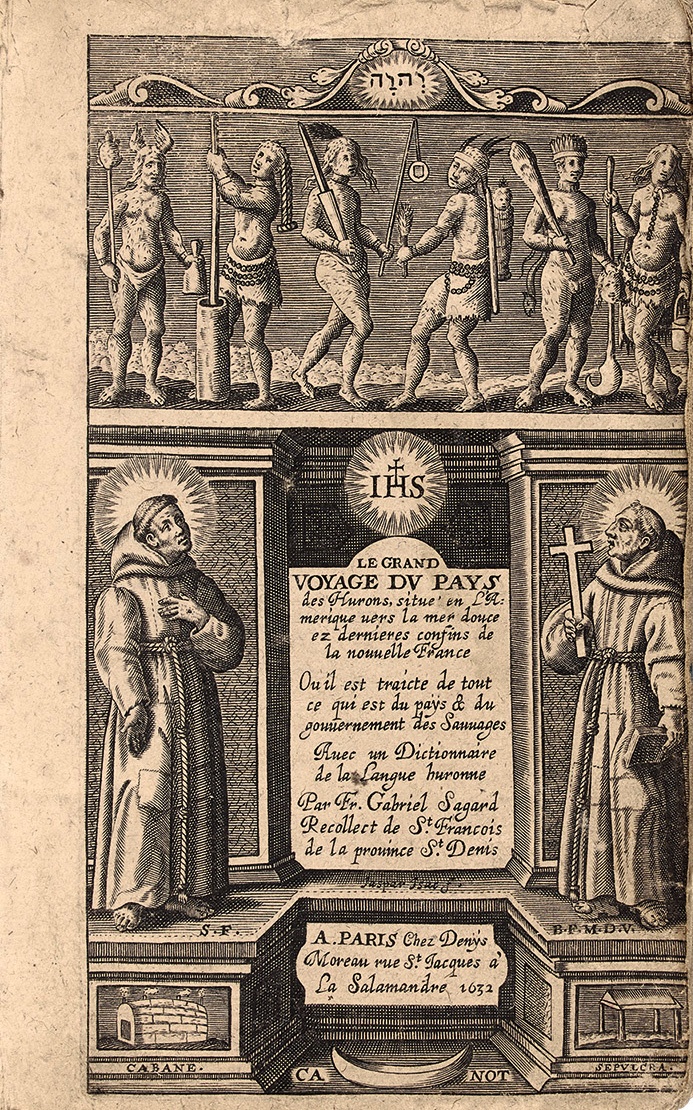 יְהוָה
IHS
LE GRAND
VOYAGE DV PAYS
des Hurons, situé en L'A-
merique vers la mer douce
ez dernieres confins de
la nouuelle France
Ou il est traicte de tout
ce qui est du pays & du
gouuernement des Sauuages
Auec un Dictionnaire
de la Langue huronne
Par Fr. Gabriel Sagard
Recollect de St. Francois
de la prouince St. Denis
Jaspar Isac f.
S. F.
B. F. M. D. V.
A. PARIS Chez Denys
Moreau rue St. Jacques a
La Salamandre 1632
CABANE.
CA NOT
SEPVLCRA.